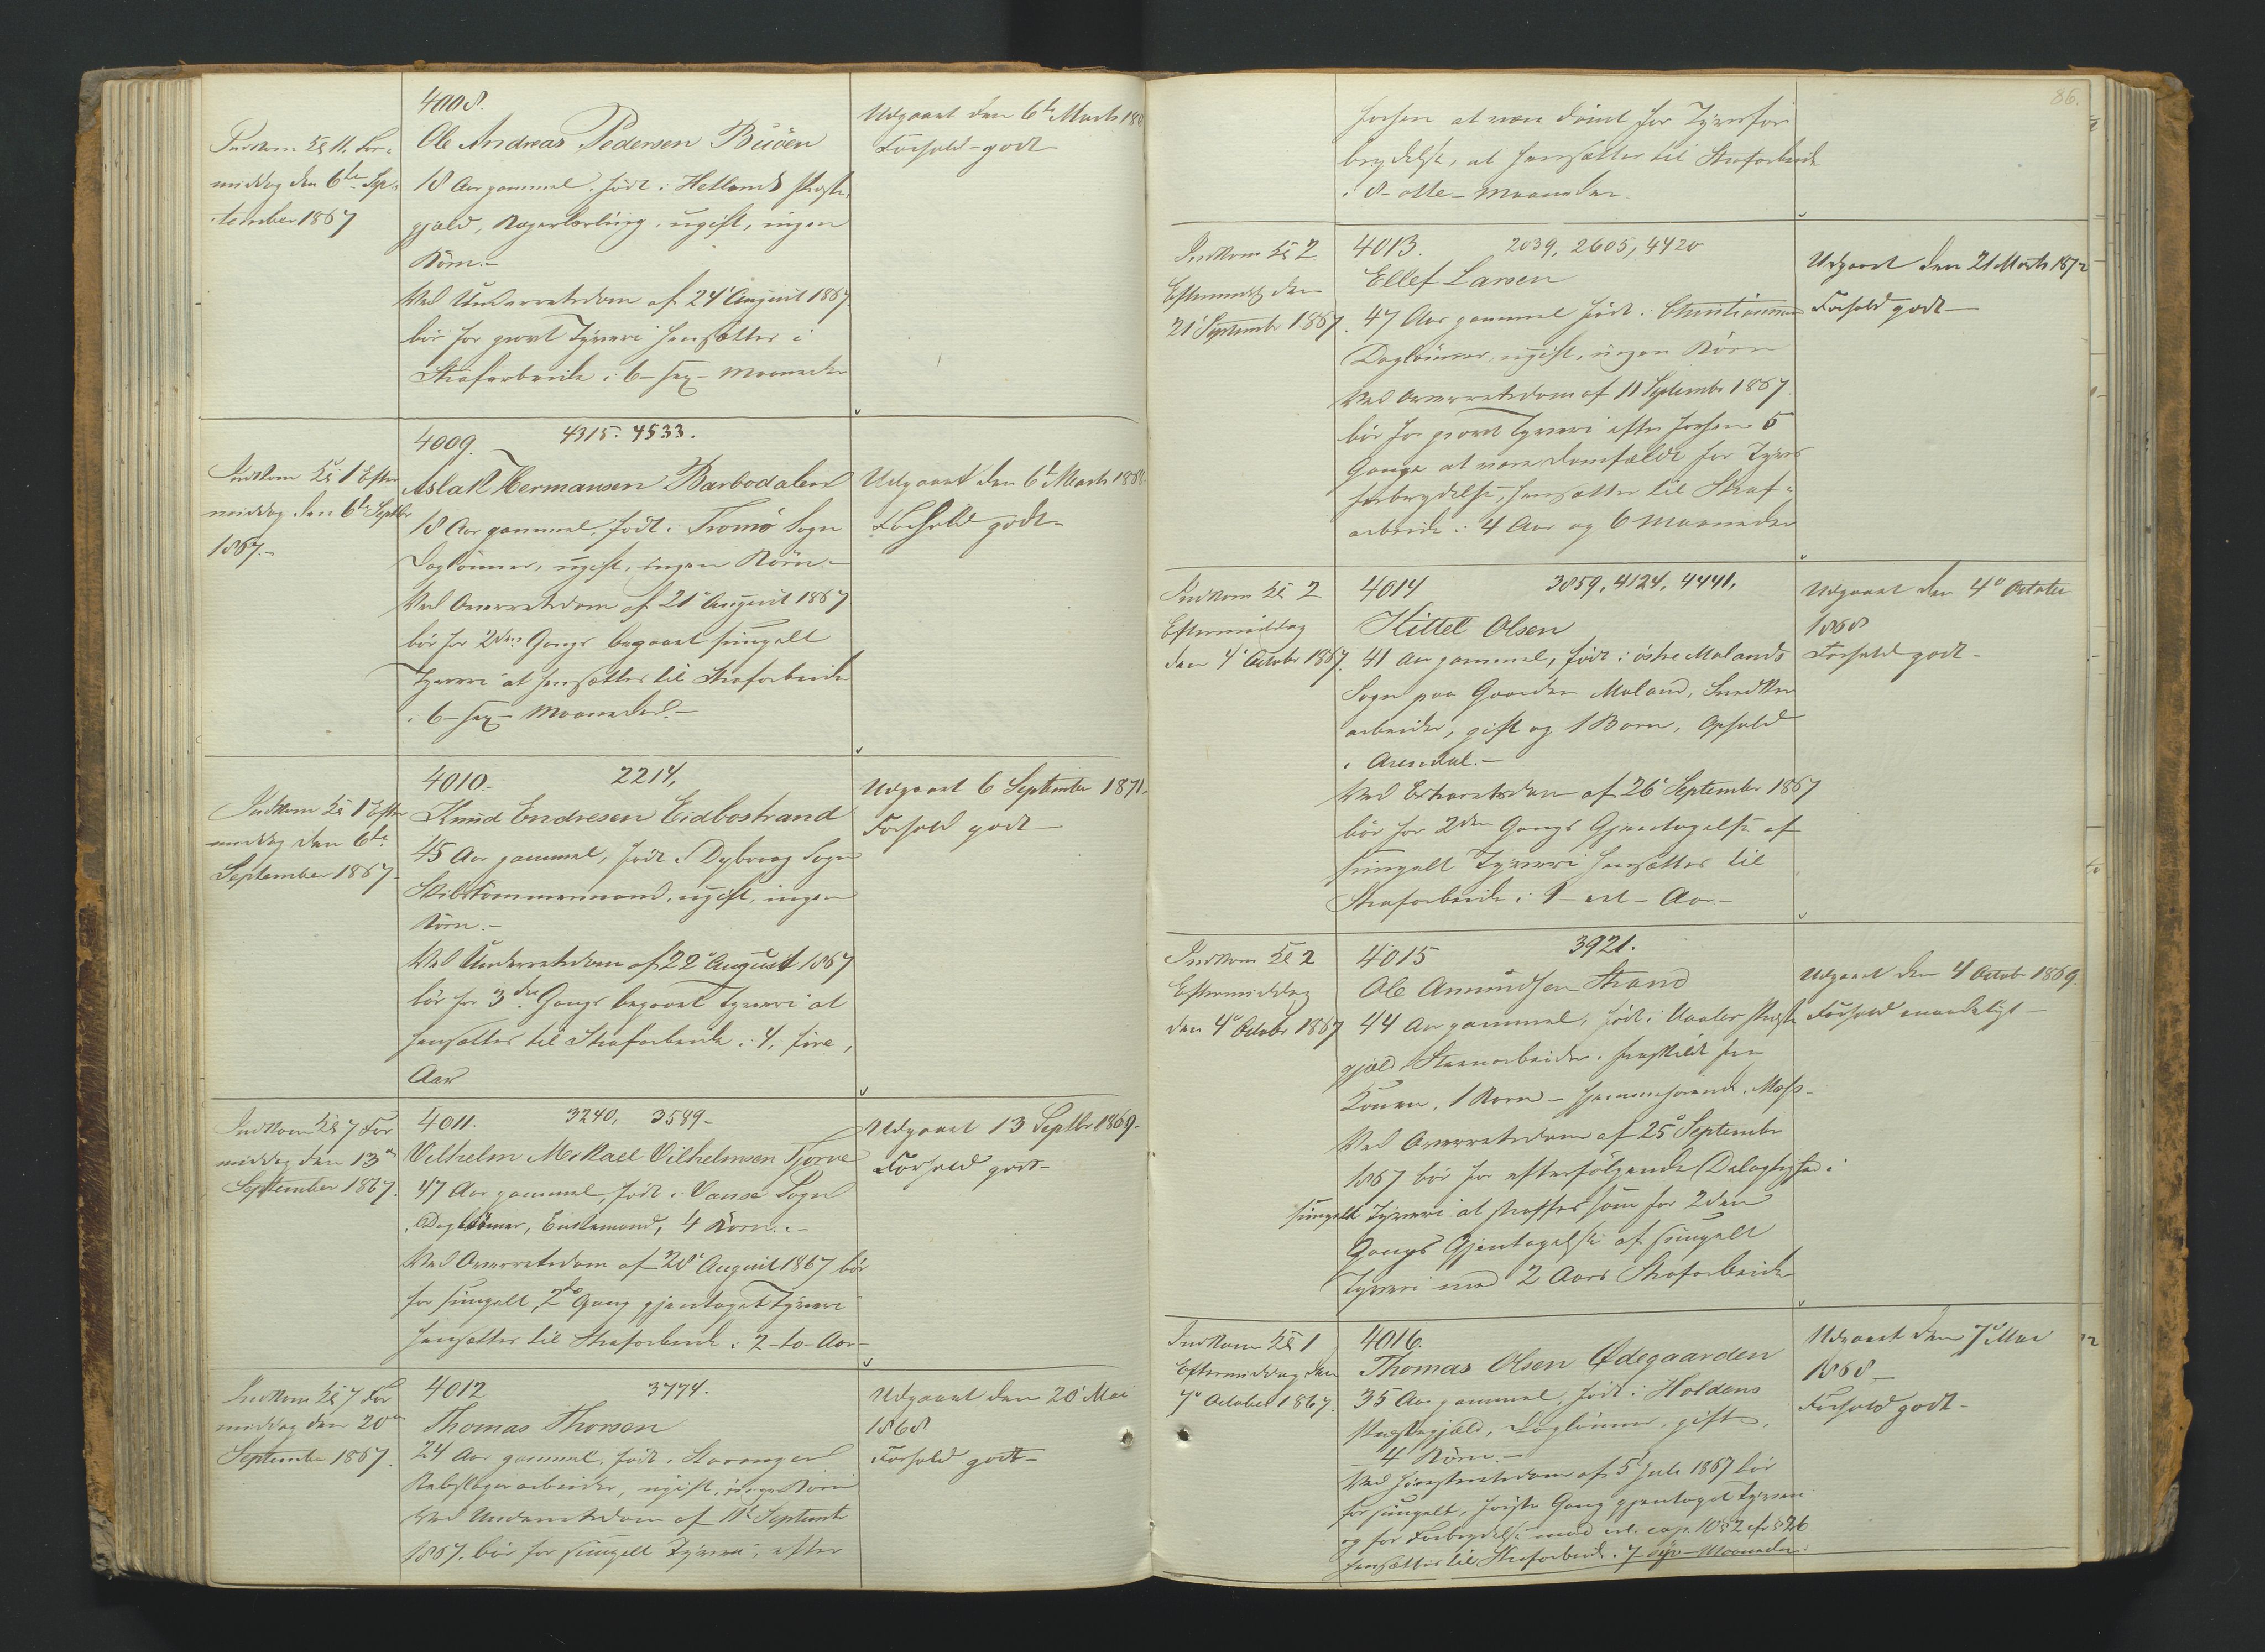 4008.
Indkom Kl 11. For-
middag den 6te Sep-
tember 1867
Ole Andreas Pedersen Buöen
18 Aar gammel, født i Hetlands Præste
gjæld, ugift, ingen
Börn.-
Ved Underretsdom af 24' August 1867
bör for grovt Tyveri hensættes i
Strafarbeide i 6 - sex - Maaneder
Udgaaet den 6te Marts 186
Forhold godt
4009. 4315. 4533.
Indkom Kl 1 Efter
middag den 6te Septbr
1867.-
Aslak Hermansen Barbodalen
18 Aar gammel, født i Tromö Sogn
Daglönner, ugift, ingen Börn.-
Ved Overretsdom af 21' August 1867
bör for 2den Gangs begaaet simpelt
Tyveri at hensættes til Strafarbeide
i 6 - sex - Maaneder.-
Udgaaet den 6te Marts 1868.
Forhold godt
4010.- 2214,
Indkom Kl 1 Efter
middag den 6te
September 1867.
Knud Endresen Eidbostrand
45 Aar gammel, født i Dybvaag Sogn
Skibstömmermand, ugift, ingen
Börn.-
Ved Underretsdom af 22' August 1867
bör for 3die Gangs begaaet Tyveri at
hensættes til Strafarbeide i 4, fire,
Aar
Udgaaet 6 September 1871.
Forhold godt
4011. 3240, 3589-
Indkom Kl 7 For
middag den 13de
September 1867.
Vilhelm Mikael Vilhelmsen Tjorve
47 Aar gammel, født i Vanse Sogn
Daglönner, Enkemand, 4 Börn.-
Ved Overretsdom af 28' August 1867 bör
for simpelt, 2den Gang gjentaget Tyveri
hensættes til Strafarbeide i 2 - to - Aar -
Udgaaet 13 Septbr 1869.
Forhold godt-
4012 3774.
Indkom Kl 7 For
middag den 20de
September 1867.
Thomas Thorsen
24 Aar gammel, født i Stavanger
Rebslagerarbeider, ugift, ingen Börn
Ved Underretsdom af 11te Septembr
1867. bör for simpelt Tyveri, efter
Udgaaet den 20' Mai
1868
Forhold godt-
86.
forhen at være dömt for Tyvsfor
brydelse, at hensættes til Strafarbeide
i 8 - otte - Maaneder.
4013. 2039, 2605, 4420
Indkom Kl 2
Eftermidg den
21' September 1867.
Ellef Larsen
47 Aar gammel født i Christianssand
Daglönner, ugift, ingen Börn
Ved Overretsdom af 11 September 1867
bör for grovt Tyveri efter forhen 5
Gange at være domfældt for Tyvs
forbrydelse, hensættes til Straf-
arbeide i 4 Aar og 6 Maaneder
Udgaaet den 21 Marts 1872
Forhold godt-
4014 3859, 4124, 4441,
Indkom Kl 2
Eftermiddag
den 4' October 1867.
Kittel Olsen
41 Aar gammel, født i östre Molands
Sogn paa Gaarden Moland, Snedker
arbeider, gift og 1 Barn, Ophold
i Arendal.-
Ved Extraretsdom af 26' September 1867
bör for 2den Gangs Gjentagelse af
simpelt Tyveri hensættes til
Strafarbeide i 1 - eet - Aar -
Udgaaet den 4' October
1868
Forhold godt-
4015 3921.
Indkom Kl 2
Eftermiddag
den 4' October 1867
Ole Amundsen Strand
44 Aar gammel, født i Præste
gjæld, Steenarbeider, fraskildt fra
Konen, 1 Barn - hjemmehörende i Moss-
Ved Overretsdom af 25' September
1867 bör for efterfölgende Delagtighed i
simpelt Tyveri at straffes som for 2den
Gangs Gjentagelse af simpelt
Tyveri med 2 Aars Strafarbeide
Udgaaet den 4 Octobr 1869.
Forhold maadeligt-
4016.
Indkom Kl 1
Eftermiddag den
7' October 1867.
Thomas Olsen Ødegaarden
35 Aar gammel, født i Holdens
Præstegjæld, Daglönner, gift,
4 Börn.-
Ved Höiesteretsdom af 5' Juli 1867 bör
for simpelt, förste Gang gjentaget Tyveri
og for Forbrydelse mod crl. cap. 10 § 2 cfr § 26
hensættes til Strafarbeide i 7 - syv - Maaneder.
Udgaaet den 7' Mai
1868-
Forhold godt-